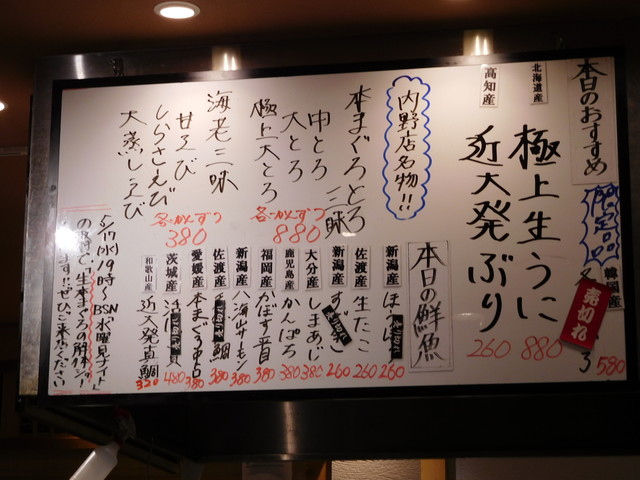 本日のおすすめ
限定品
韓国産
売切れ
3
580
北海道産
極上生うに
880
高知産
近大発ぶり
260
内野店名物!!
本まぐろとろ三昧
中とろ
大とろ
極上大とろ
各一かんずつ
880
海老三味
甘えび
しろさえび
大蒸しえび
各一かんずつ
380
本日の鮮魚
新潟産
売り切れ
260
佐渡産
生たこ
260
新潟産
260
大分産
しまあじ
380
鹿児島産
かんぱち
380
福岡産
かぼす平目
380
新潟産
八海山サーモン
380
佐渡産
鯛
380
愛媛産
本まぐろ中とろ
380
茨城産
480
和歌山産
近大発真鯛
320
5/17(水)19時〜BSN「水曜見ナイト」
の番組で「生本まぐろの解体ショー」
します!!ぜひご来店ください